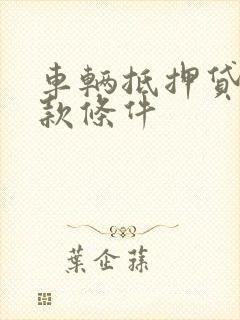 車輌抵押貸
款條件
葉企蓀